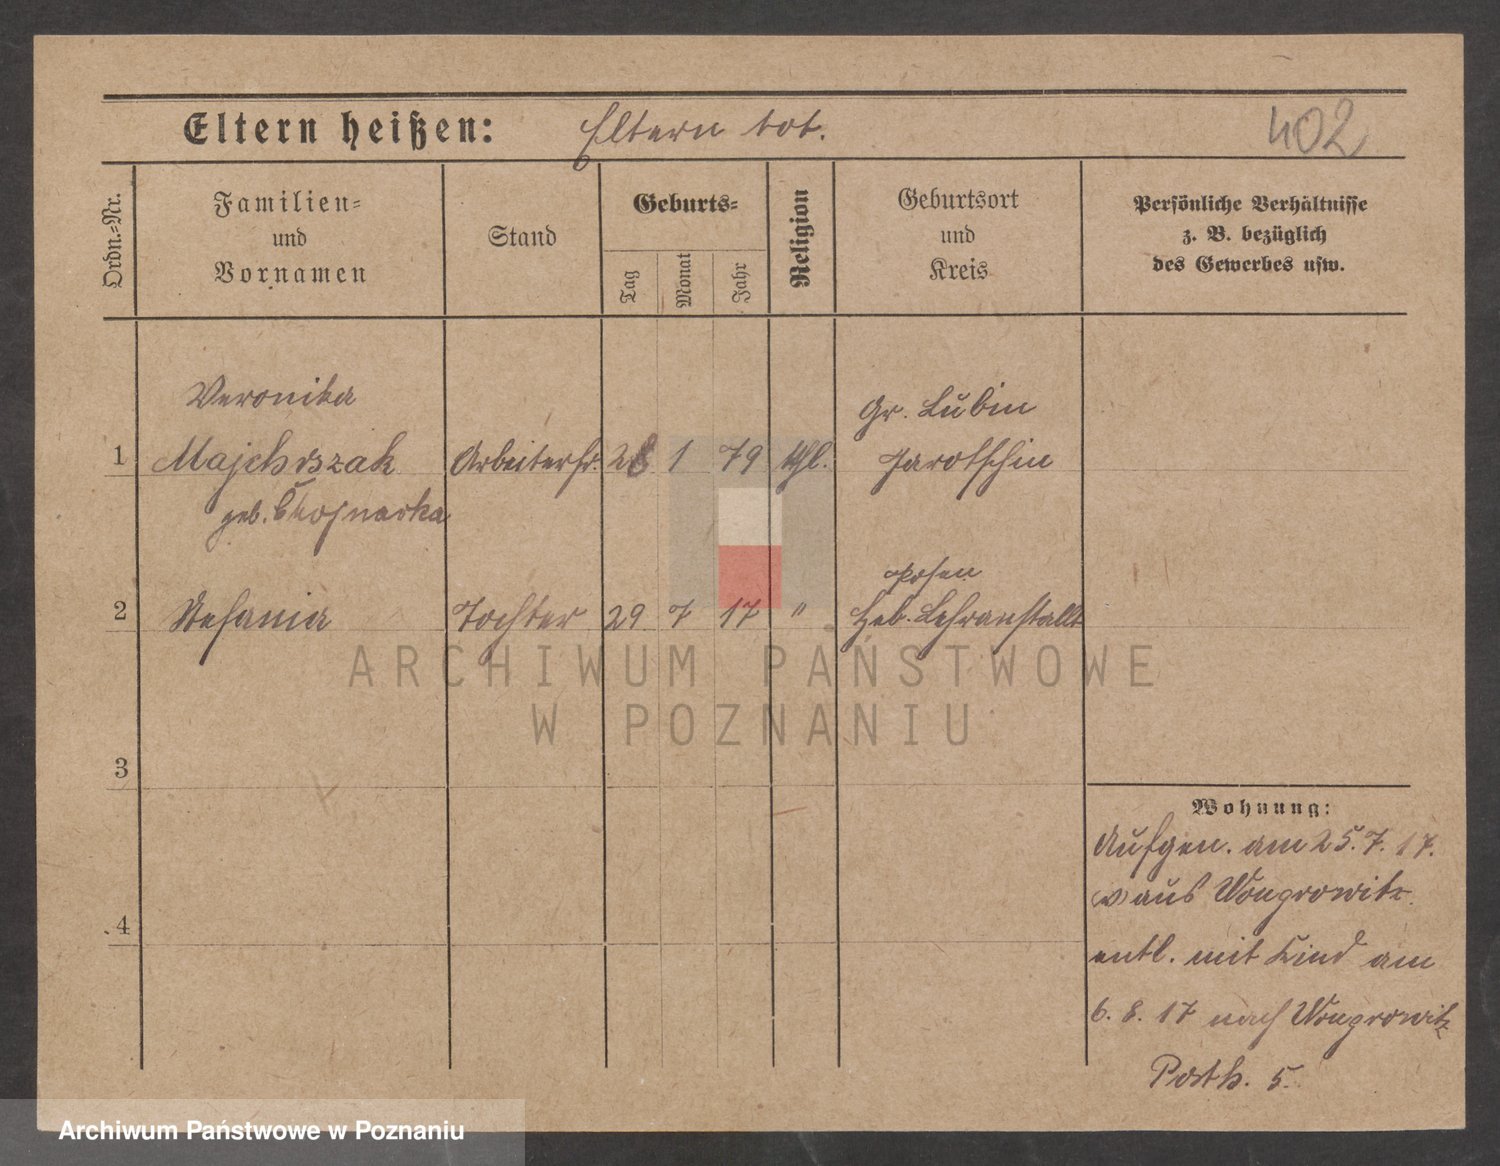 Eltern heißen: Eltern tot.
402
Ordn.-Nr.
Familien-
und
Vornamen
Stand
Geburts-
Tag
Monat
Jahr
Religion
Geburtsort
und
Kreis
Persönliche Verhältnisse
z. B. bezüglich
des Gewerbes usw.
Veronika
Gr. Lubin
1 Majchrszak Arbeiterfr. 28 1 79 kthl. Jarotschin
geb.
Posen
2 Stefania Tochter 29 7 17 " Heb. Lehranstallt
3
4
Wohnung:
Aufgen. am 25.7.17.
aus Wongrowitz.
entl. mit Kind am
6. 8. 17 nach Wongrowitz
5.
ARCHIWUM PAŃSTWOWE
W POZNANIU
Archiwum Państwowe w Poznaniu